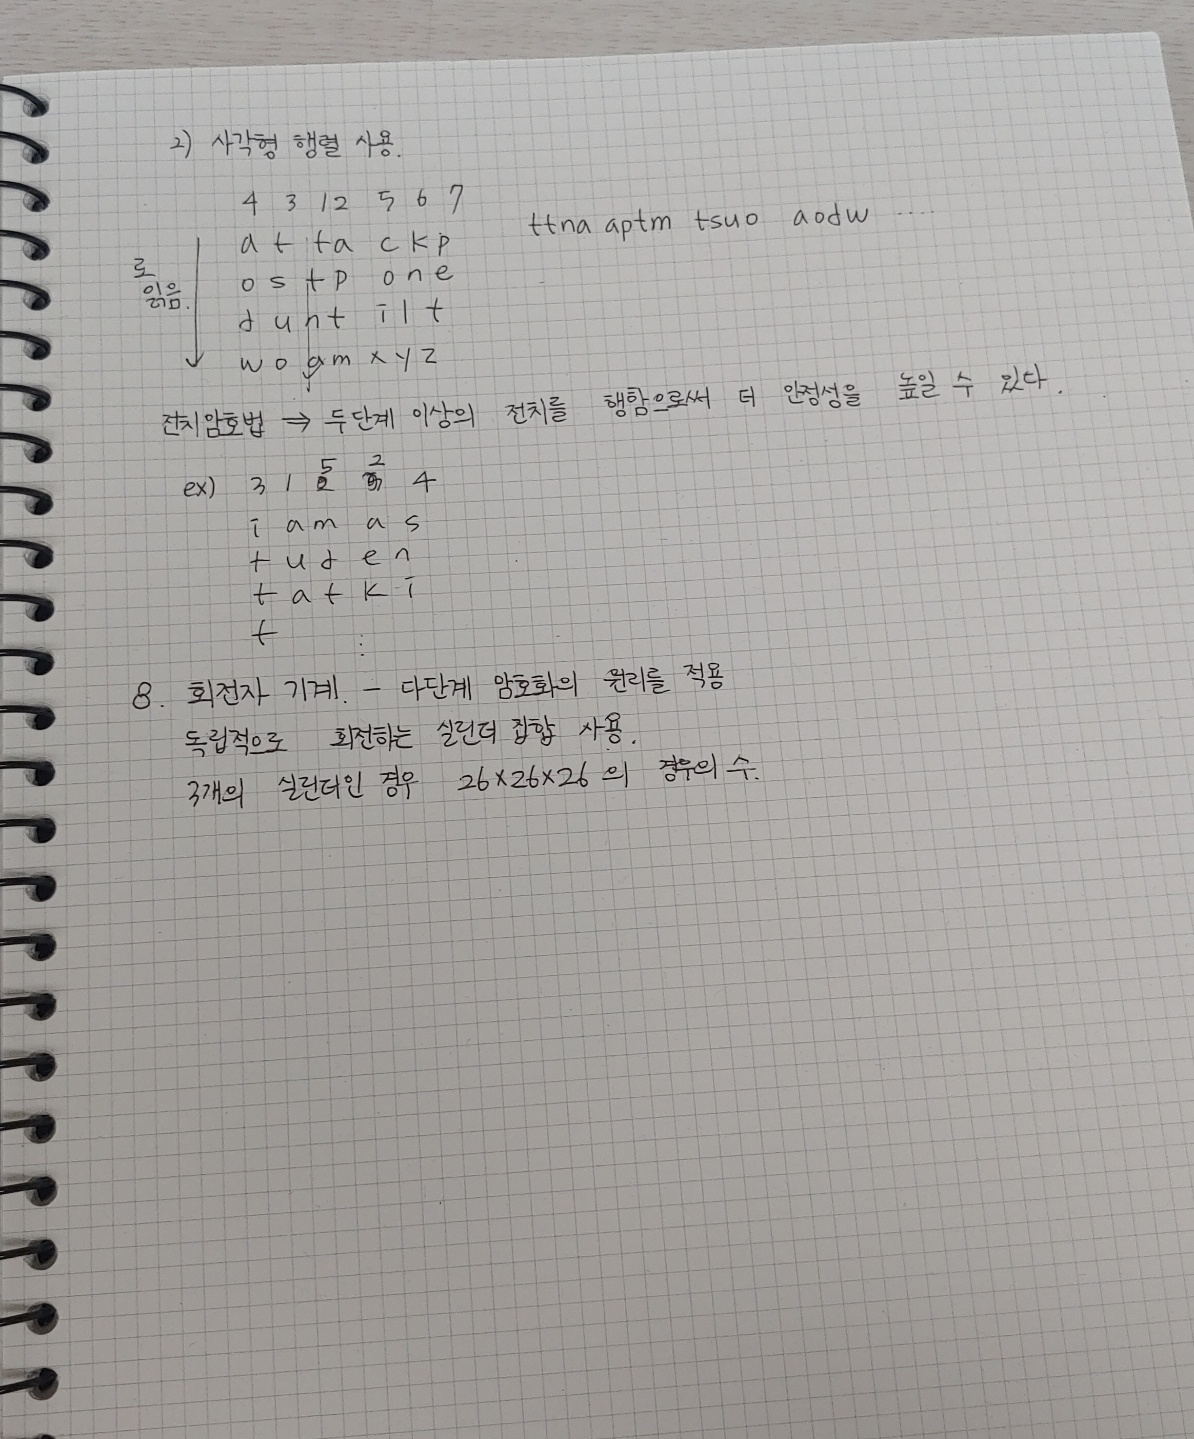 2) 사각형 행렬 사용.
4 3 1 2 5 6 7
a t t a c k p
o s t p o n e
d u n t i l t
w o a m x y z
로
읽음.
ttna aptm tsuo aodw ....
전치암호법 ⇒ 두단계 이상의 전치를 행함으로써 더 안정성을 높일 수 있다.
ex) 3 1 5 2 4
i a m a s
t u d e n
t a t k i
t ⋮
8. 회전자 기계! - 다단계 암호화의 원리를 적용
독립적으로 회전하는 실린더 집합 사용.
3개의 실린더인 경우 26×26×26의 경우의 수.